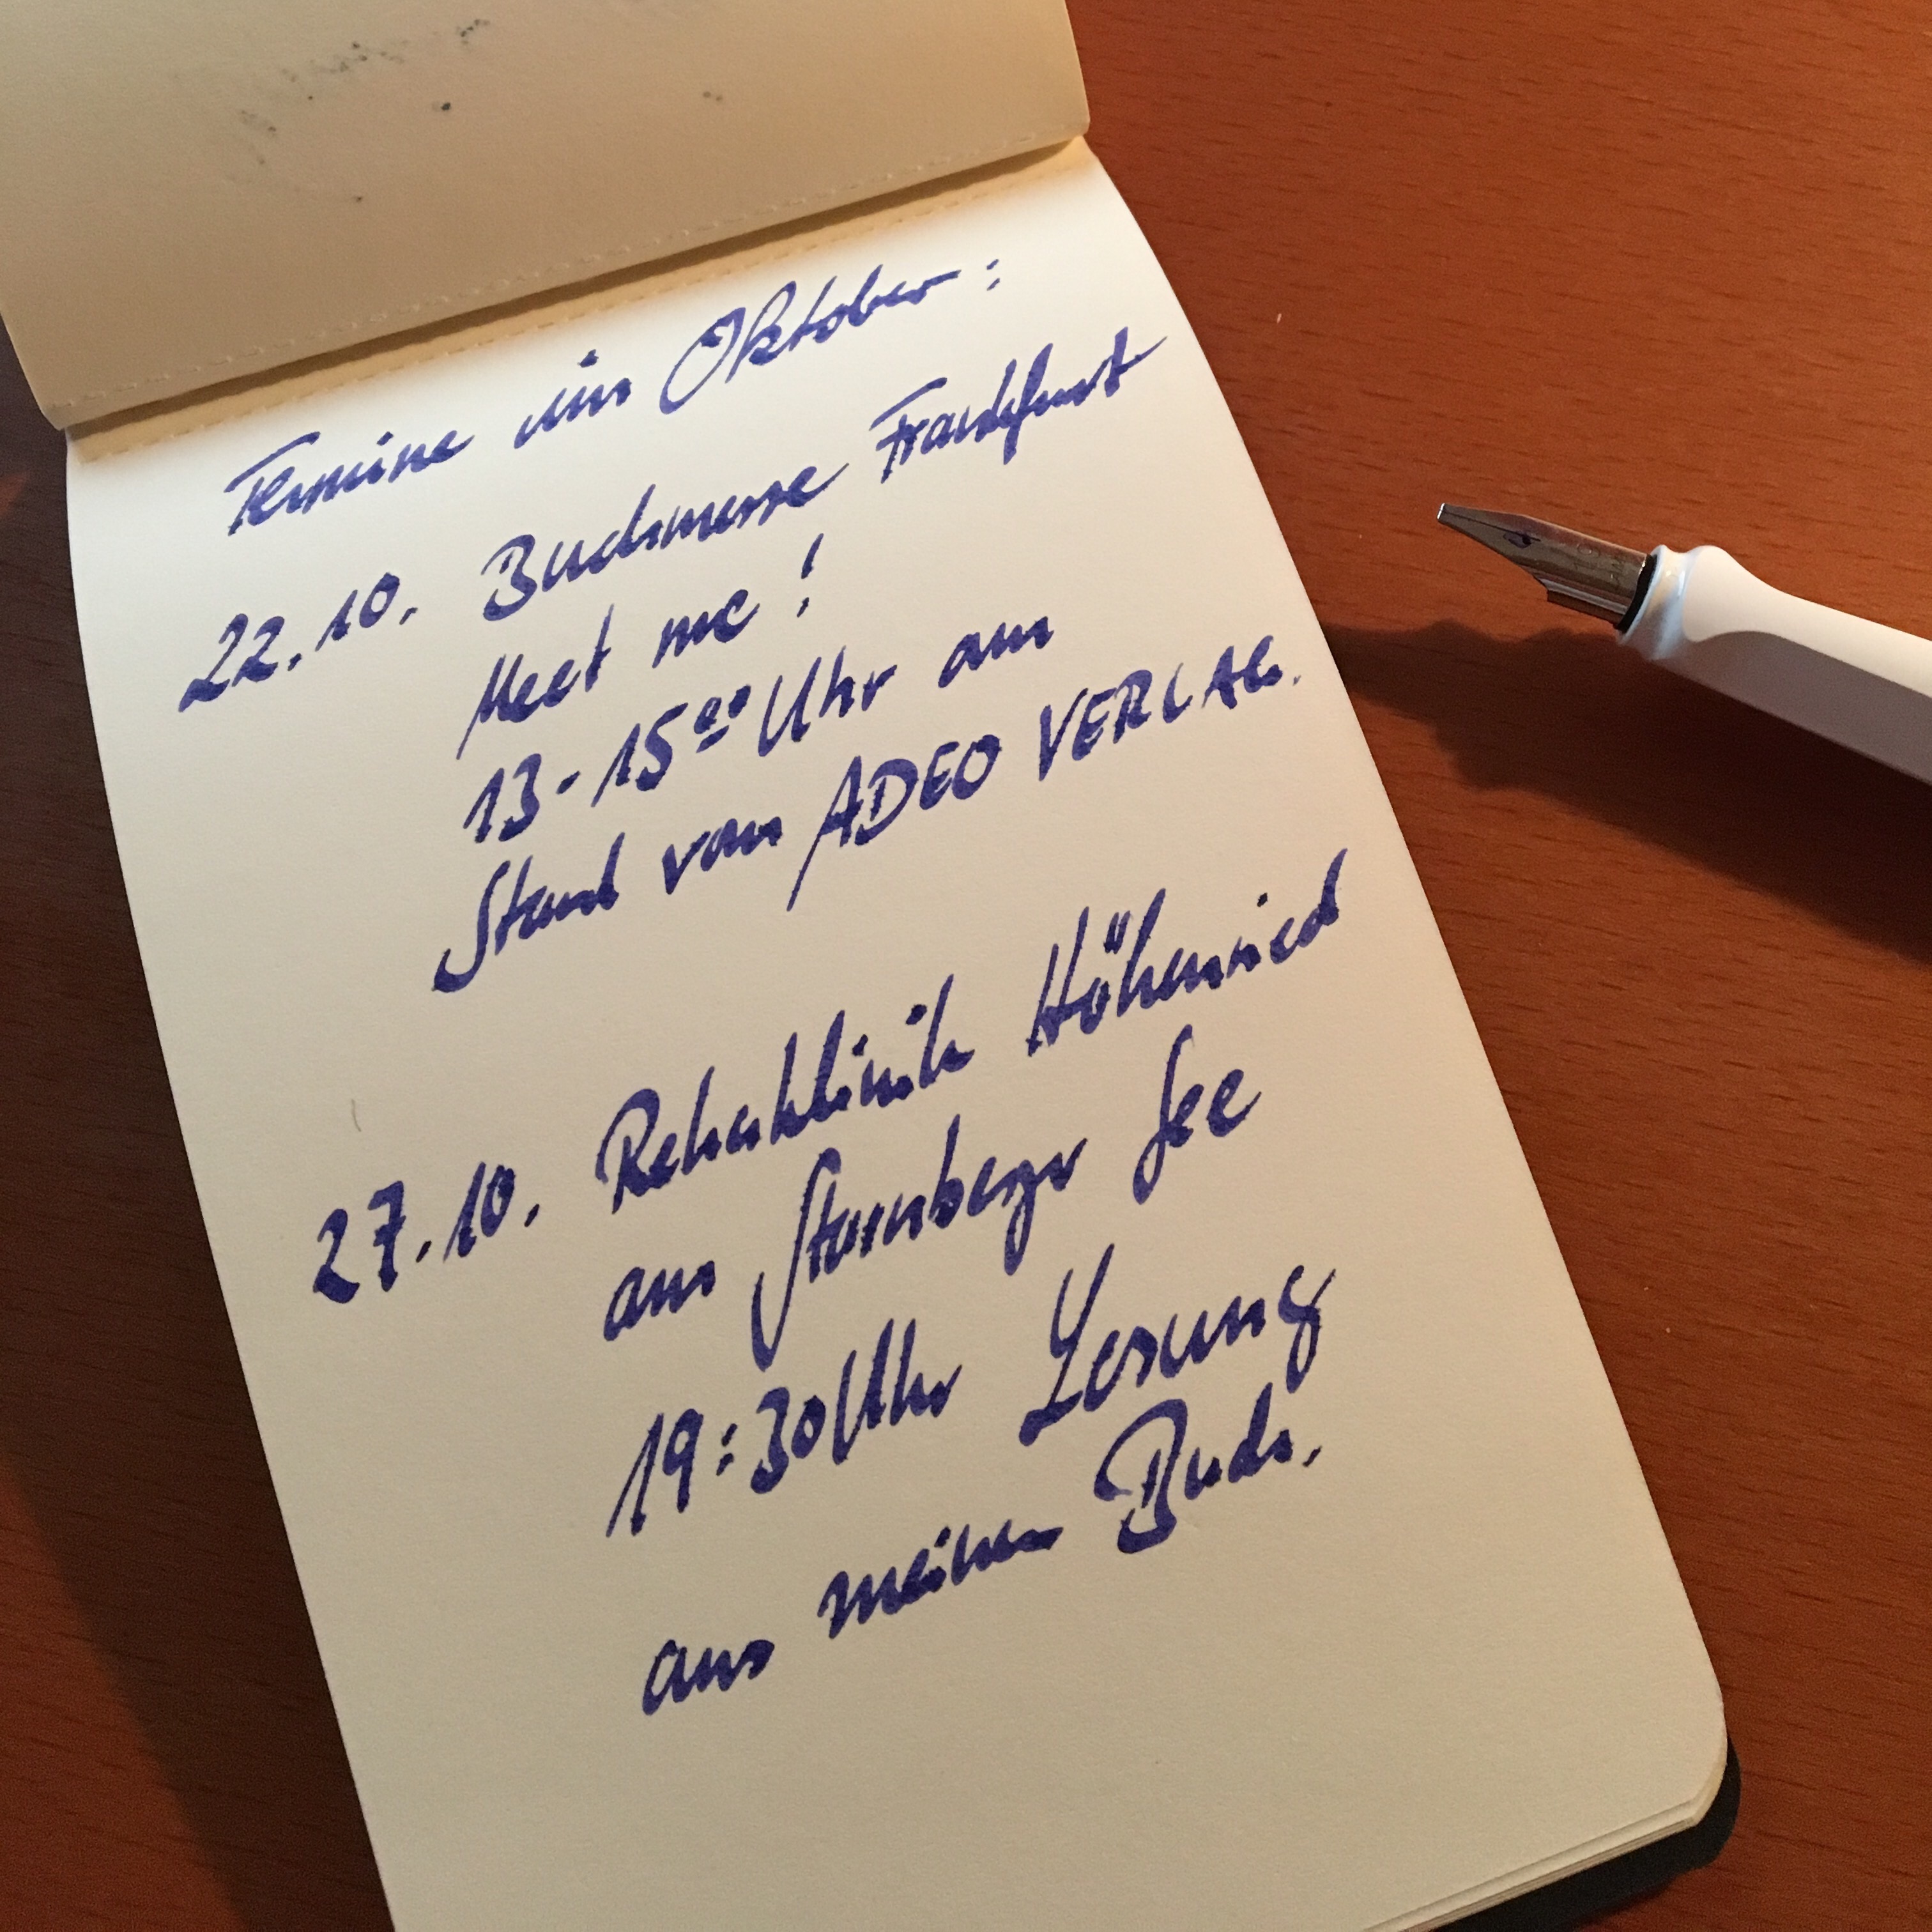 Termine im Oktober:
22.10. Buchmesse Frankfurt
Meet me!
13-15⁰⁰ Uhr am
Stand vom ADEO VERLAG.
27.10. Rehaklinik Höhenried
am Starnberger See
19:30 Uhr Lesung
aus meinem Buch.